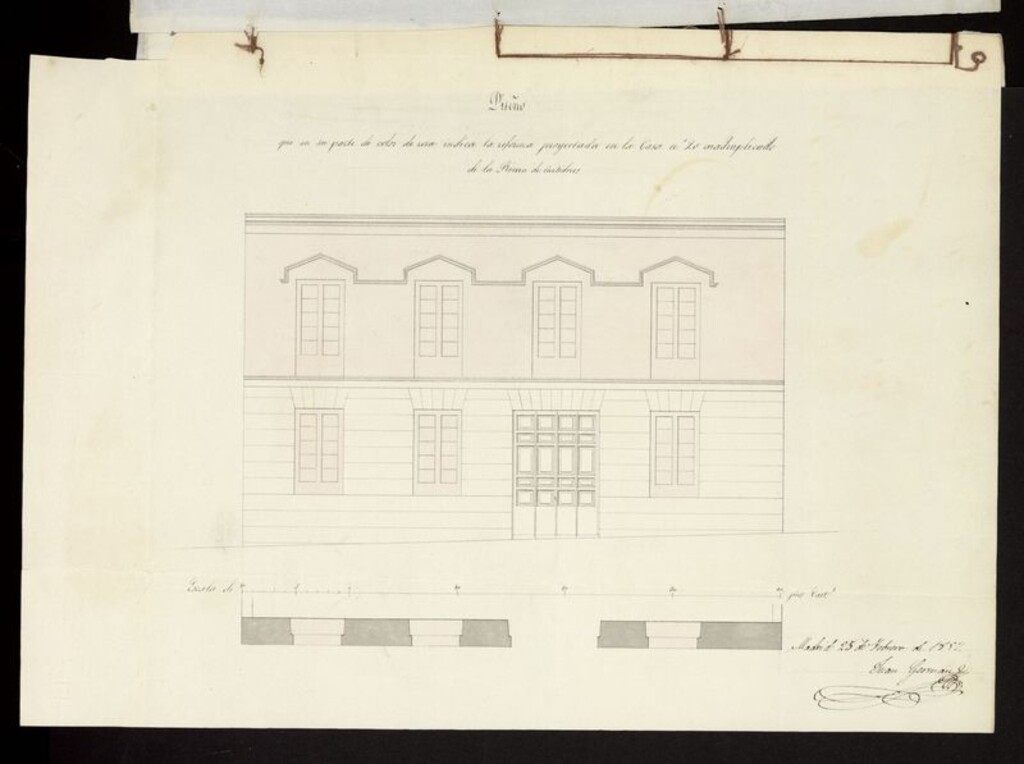 Diseño
que en su parte de color de rosa indica la reforma proyectada en la Casa nº 20 cuadruplicado
de la Ribera de Curtidores
Escala de pies Cast.
Madrid 25 de Febrero de 1857
Juan German